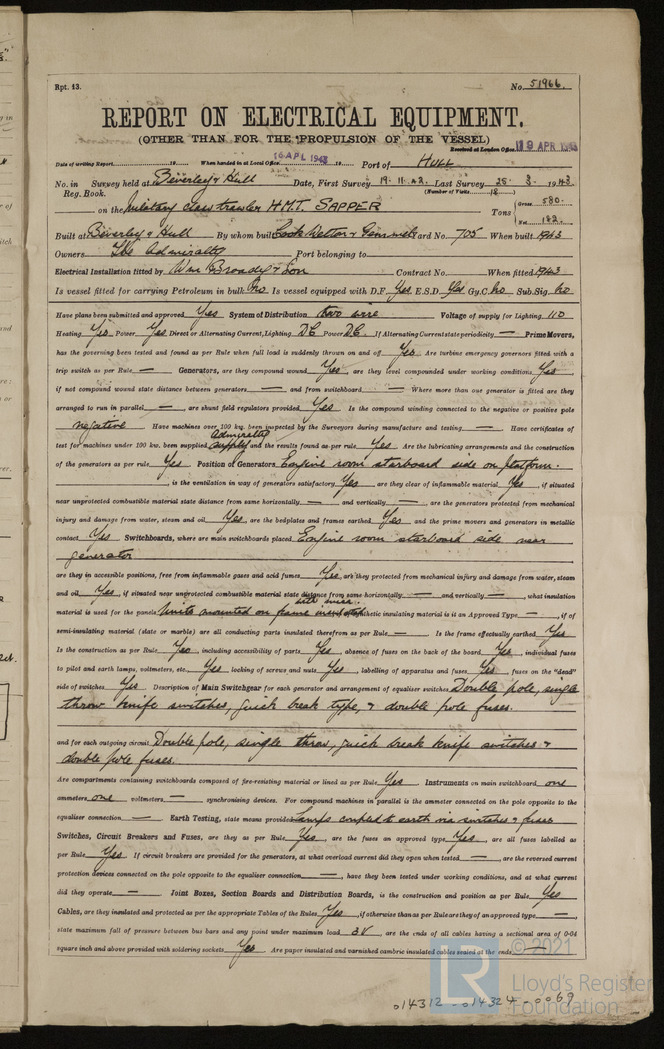 Rpt. 13.
No. 51966.
REPORT ON ELECTRICAL EQUIPMENT.
(OTHER THAN FOR THE PROPULSION OF THE VESSEL)
Received at London Office 19 APR 1943
Date of writing Report 19 When handed in at Local Office 16 APL 1943 19 Port of Hull
No. in Survey held at Beverley & Hull Date, First Survey 19.11.42 Last Survey 25.3.1943
Reg. Book. (Number of Visits 18)
on the Military class trawler H.M.T. SAPPER Tons Gross 580. Net 182.
Built at Beverley & Hull By whom built Cook Welton & Gemmell Yard No. 705 When built 1943
Owners The Admiralty Port belonging to
Electrical Installation fitted by Wm Broady & Son Contract No. When fitted 1943
Is vessel fitted for carrying Petroleum in bulk No Is vessel equipped with D.F. Yes E.S.D. Yes Gy.C. No Sub.Sig. No
Have plans been submitted and approved Yes System of Distribution two wire Voltage of supply for Lighting 110
Heating Yes Power Yes Direct or Alternating Current, Lighting DC Power DC. If Alternating Current state periodicity — Prime Movers,
has the governing been tested and found as per Rule when full load is suddenly thrown on and off Yes. Are turbine emergency governors fitted with a
trip switch as per Rule — Generators, are they compound wound Yes, are they level compounded under working conditions Yes,
if not compound wound state distance between generators — and from switchboard — Where more than one generator is fitted are they
arranged to run in parallel —, are shunt field regulators provided Yes Is the compound winding connected to the negative or positive pole
negative Have machines over 100 kw. been inspected by the Surveyors during manufacture and testing — Have certificates of
test for machines under 100 kw. been supplied Admiralty supply and the results found as per rule Yes Are the lubricating arrangements and the construction
of the generators as per rule Yes Position of Generators Engine room starboard side on platform.
, is the ventilation in way of generators satisfactory Yes are they clear of inflammable material Yes, if situated
near unprotected combustible material state distance from same horizontally — and vertically —, are the generators protected from mechanical
injury and damage from water, steam and oil Yes, are the bedplates and frames earthed Yes and the prime movers and generators in metallic
contact Yes Switchboards, where are main switchboards placed Engine room starboard side near
generator
are they in accessible positions, free from inflammable gases and acid fumes Yes, are they protected from mechanical injury and damage from water, steam
and oil Yes, if situated near unprotected combustible material state distance from same horizontally — and vertically —, what insulation
material is used for the panels Units mounted on frame insulated with mica. if synthetic insulating material is it an Approved Type —, if of
semi-insulating material (slate or marble) are all conducting parts insulated therefrom as per Rule — Is the frame effectually earthed Yes
Is the construction as per Rule Yes, including accessibility of parts Yes, absence of fuses on the back of the board Yes, individual fuses
to pilot and earth lamps, voltmeters, etc. Yes locking of screws and nuts Yes, labelling of apparatus and fuses Yes, fuses on the "dead"
side of switches Yes Description of Main Switchgear for each generator and arrangement of equaliser switches Double pole, single
throw knife switches, quick break type, & double pole fuses.
and for each outgoing circuit Double pole, single throw, quick break knife switches &
double pole fuses.
Are compartments containing switchboards composed of fire-resisting material or lined as per Rule Yes Instruments on main switchboard one
ammeters one voltmeters — synchronising devices. For compound machines in parallel is the ammeter connected on the pole opposite to the
equaliser connection — Earth Testing, state means provided Lamps coupled to earth via switches & fuses
Switches, Circuit Breakers and Fuses, are they as per Rule Yes, are the fuses an approved type Yes, are all fuses labelled as
per Rule Yes If circuit breakers are provided for the generators, at what overload current did they open when tested —, are the reversed current
protection devices connected on the pole opposite to the equaliser connection —, have they been tested under working conditions, and at what current
did they operate — Joint Boxes, Section Boards and Distribution Boards, is the construction and position as per Rule Yes
Cables, are they insulated and protected as per the appropriate Tables of the Rules Yes, if otherwise than as per Rule are they of an approved type —,
state maximum fall of pressure between bus bars and any point under maximum load 3V, are the ends of all cables having a sectional area of 0·04
square inch and above provided with soldering sockets Yes Are paper insulated and varnished cambric insulated cables sealed at the ends
© 2021
LR
Lloyd's Register
Foundation
014312-014324-0069